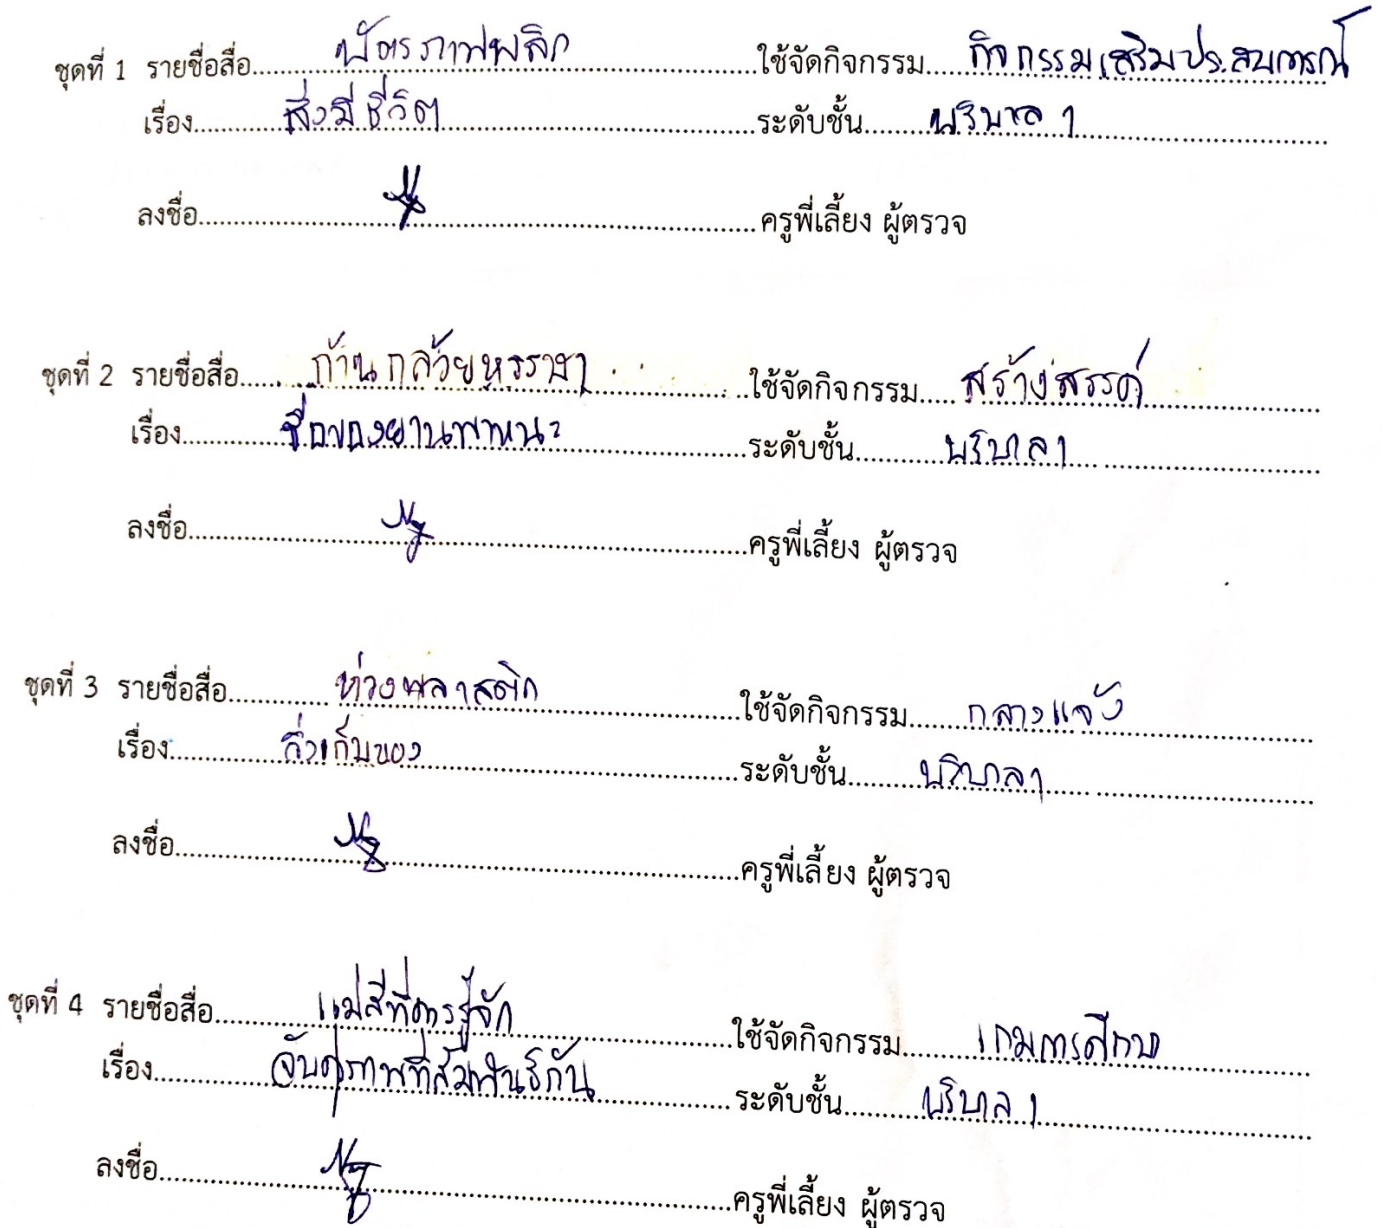 ชุดที่ 1 รายชื่อสื่อ บัตรภาพพลิก ใช้จัดกิจกรรม กิจกรรมเสริมประสบการณ์
เรื่อง สิ่งมีชีวิต ระดับชั้น บริบาล 1
ลงชื่อ ครูพี่เลี้ยง ผู้ตรวจ
ชุดที่ 2 รายชื่อสื่อ ก้านกล้วยหรรษา ใช้จัดกิจกรรม สร้างสรรค์
เรื่อง ชื่อของยานพาหนะ ระดับชั้น บริบาล 1
ลงชื่อ ครูพี่เลี้ยง ผู้ตรวจ
ชุดที่ 3 รายชื่อสื่อ ห่วงพลาสติก ใช้จัดกิจกรรม กลางแจ้ง
เรื่อง วิ่งเก็บของ ระดับชั้น บริบาล 1
ลงชื่อ ครูพี่เลี้ยง ผู้ตรวจ
ชุดที่ 4 รายชื่อสื่อ แม่สีที่ควรรู้จัก ใช้จัดกิจกรรม เกมการศึกษา
เรื่อง จับคู่ภาพที่สัมพันธ์กัน ระดับชั้น บริบาล 1
ลงชื่อ ครูพี่เลี้ยง ผู้ตรวจ